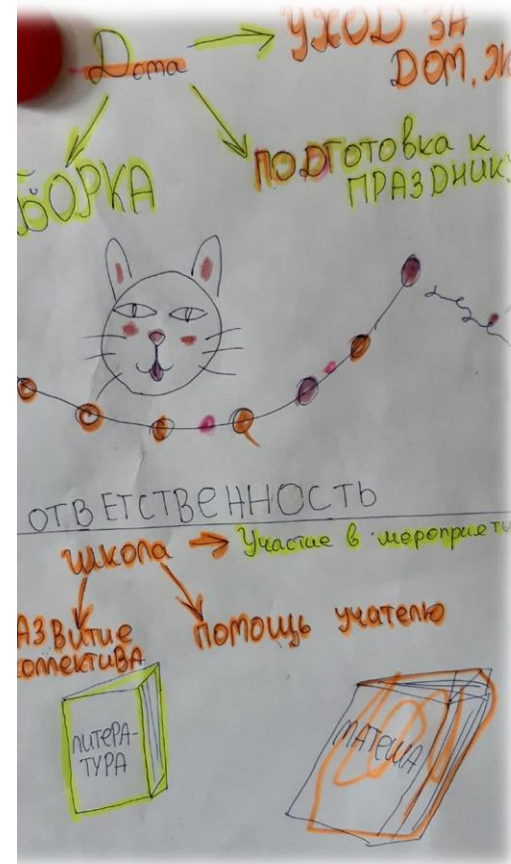 Дома
УХОД ЗА
ДОМ. Ж
БОРКА
ПОДГОТОВКА К
ПРАЗДНИК
ОТВЕТСТВЕННОСТЬ
школа
Участие в мероприяти
АЗВИТИЕ
ПОМОЩЬ учателю
ЛИТЕРА-
ТУРА
МАТЕША